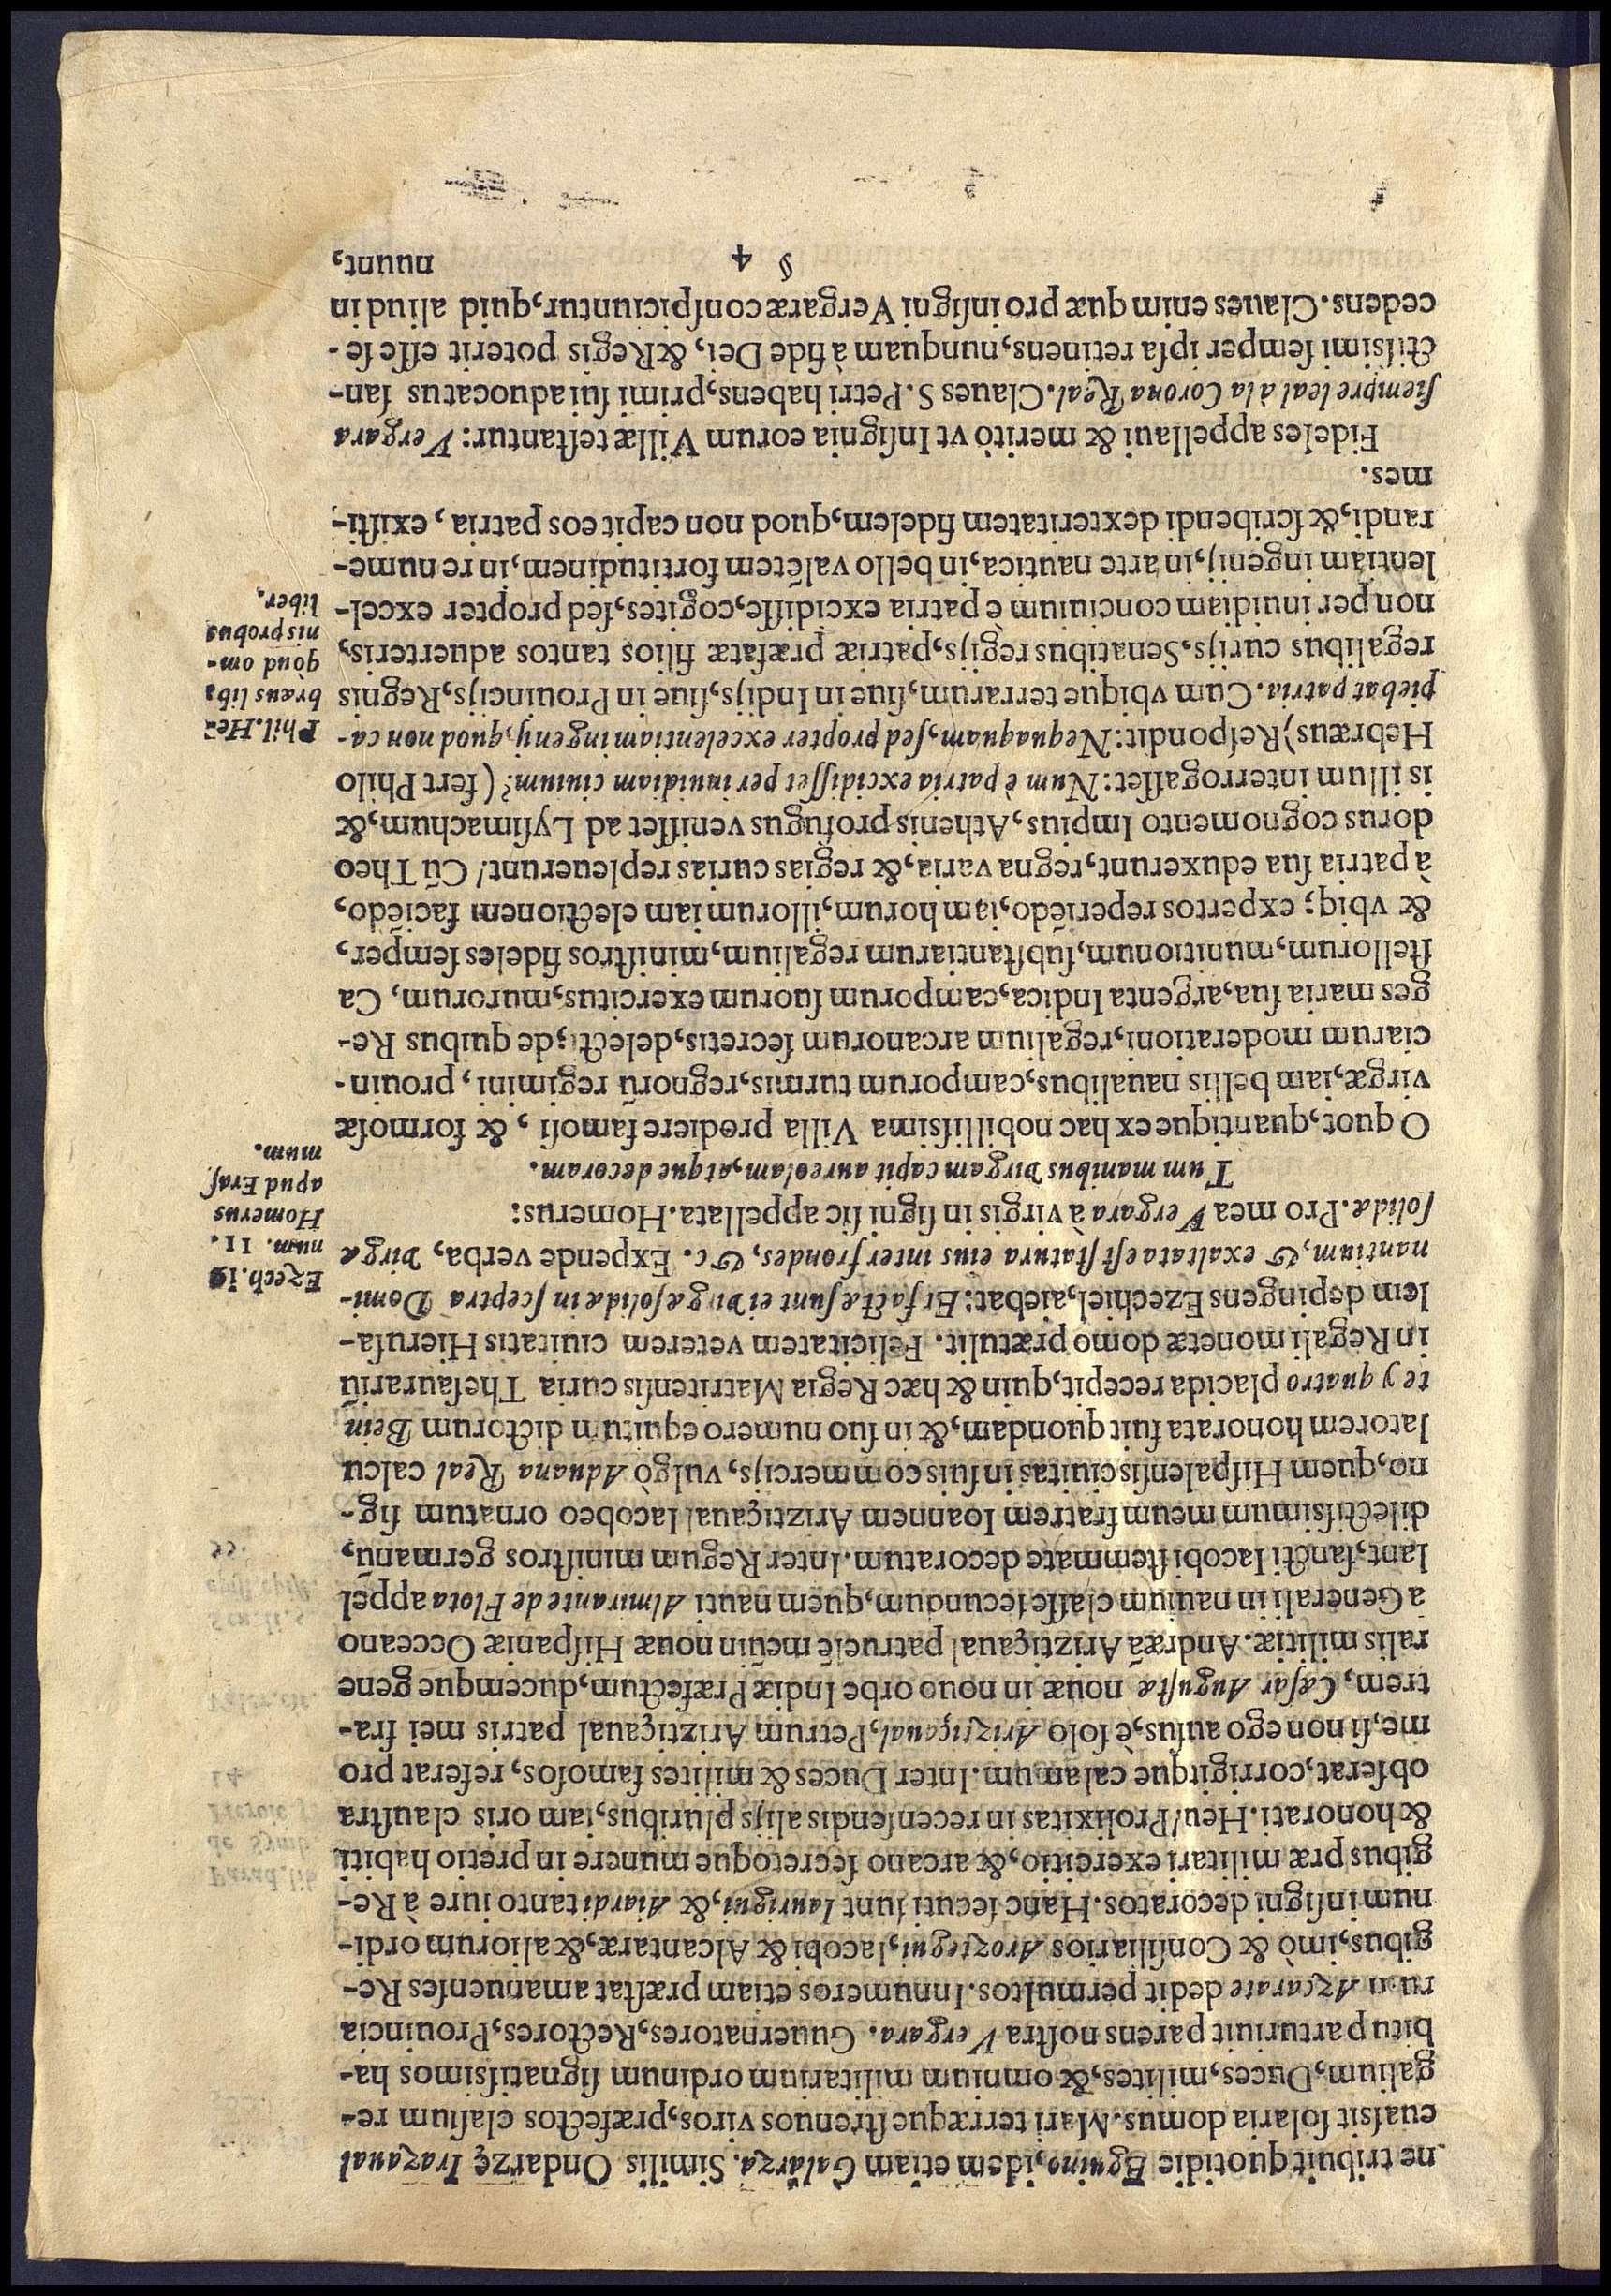 ne tribuit quotidie Eguino, idem etiam Galarza. Similis Ondarzę Irazaual
euasit solaria domus. Mari terræque ſtrenuos viros, præfectos claſium re-
galium, Duces, milites, & omnium militarium ordinum ſignatiſsimos ha-
bitu parturiuit parens noſtra Vergara. Guuernatores, Rectores, Prouincia
rum Azcarate dedit permultos. Innumeros etiam præſtat amanuenſes Re-
gibus, imò & Conſiliarios Arozteguí, Iacobi & Alcantaræ, & aliorum ordi-
num inſigni decoratos. Hanc ſecuti ſunt Iaurigui, & Aiardi tanto iure à Re-
gibus præ militari exercitio, & arcano ſecretoque munere in pretio habiti
& honorati. Heu! Prolixitas in recenſendis alijs pluribus, iam oris clauſtra
obſerat, corrigitque calamum. Inter Duces & milites famoſos, referat pro
me, ſi non ego auſus, è ſolo Ariztiçaual, Petrum Ariztiçaual patris mei fra-
trem, Cæſar Auguſtæ nouæ in nouo orbe Indiæ Præfectum, ducemque gene
ralis militiæ. Andræã Ariztiçaual patruelē meũ in nouæ Hiſpaniæ Occeano
a Generali in nauium claſſe ſecundum, quem nauti Almirante de Flota appel
lant, ſancti Iacobi ſtemmate decoratum. Inter Regum miniſtros germanũ,
dilectiſsimum meum fratrem Ioannem Ariztiçaual Iacobeo ornatum ſig-
no, quem Hiſpalenſis ciuitas in ſuis commercijs, vulgò Aduana Real calcu
latorem honorata fuit quondam, & in ſuo numero equitum dictorum Bein
te y quatro placida recepit, quin & hæc Regia Matritenſis curia Theſaurariũ
in Regali monetæ domo prætulit. Felicitatem veterem ciuitatis Hieruſa-
lem depingens Ezechiel, aiebat: Et factæ ſunt ei virgæ ſolidæ in ſceptra Domi-
nantium, & exaltata eſt ſtatura eius inter frondes, &c. Expende verba, virgæ
ſolidæ. Pro mea Vergara à virgis in ſigni ſic appellata. Homerus:
Ezech. 19
num. 11.
Homerus
apud Eraſ
mum.
Tum manibus virgam capit aureolam, atque decoram.
O quot, quantique ex hac nobilliſsima Villa prodiere famoſi, & formoſæ
virgæ, iam belliis naualibus, camporum turmis, regnorũ regimini, prouin-
ciarum moderationi, regalium arcanorum ſecretis, delecti; de quibus Re-
ges maria ſua, argenta Indica, camporum ſuorum exercitus, murorum, Ca
ſtellorum, munitionum, ſubſtantiarum regalium, miniſtros fideles ſemper,
& vbiq; expertos reperiēdo, iam horum, illorum iam electionem faciēdo,
à patria ſua eduxerunt, regna varia, & regias curias repleuerunt! Cũ Theo
dorus cognomento Impius, Athenis profugus veniſſet ad Lyſimachum, &
is illum interrogaſſet: Num è patria excidiſſet per inuidiam ciuium? (fert Philo
Hebræus) Reſpondit: Nequaquam, ſed propter excelentiam ingenij, quod non ca-
piebat patria. Cum vbique terrarum, ſiue in Indijs, ſiue in Prouincijs, Regnis
regalibus curijs, Senatibus regijs, patriæ præfatæ filios tantos aduerteris,
non per inuidiam conciuium è patria excidiſſe, cogites, ſed propter excel-
lentiam ingenij, in arte nautica, in bello valētem fortitudinem, in re nume-
randi, & ſcribendi dexteritatem fidelem, quod non capit eos patria, exiſti-
mes.
Phil. He-
bræus lib,
qòud om-
nis probus
liber.
Fideles appellaui & meritò vt Inſignia eorum Villæ teſtantur: Vergara
ſiempre leal à la Corona Real. Claues S. Petri habens, primi ſui aduocatus ſan-
ctiſsimi ſemper ipſa retinens, nunquam à fide Dei, & Regis poterit eſſe ſe-
cedens. Claues enim quæ pro inſigni Vergaræ conſpiciuntur, quid aliud in
§ 4 nuunt,